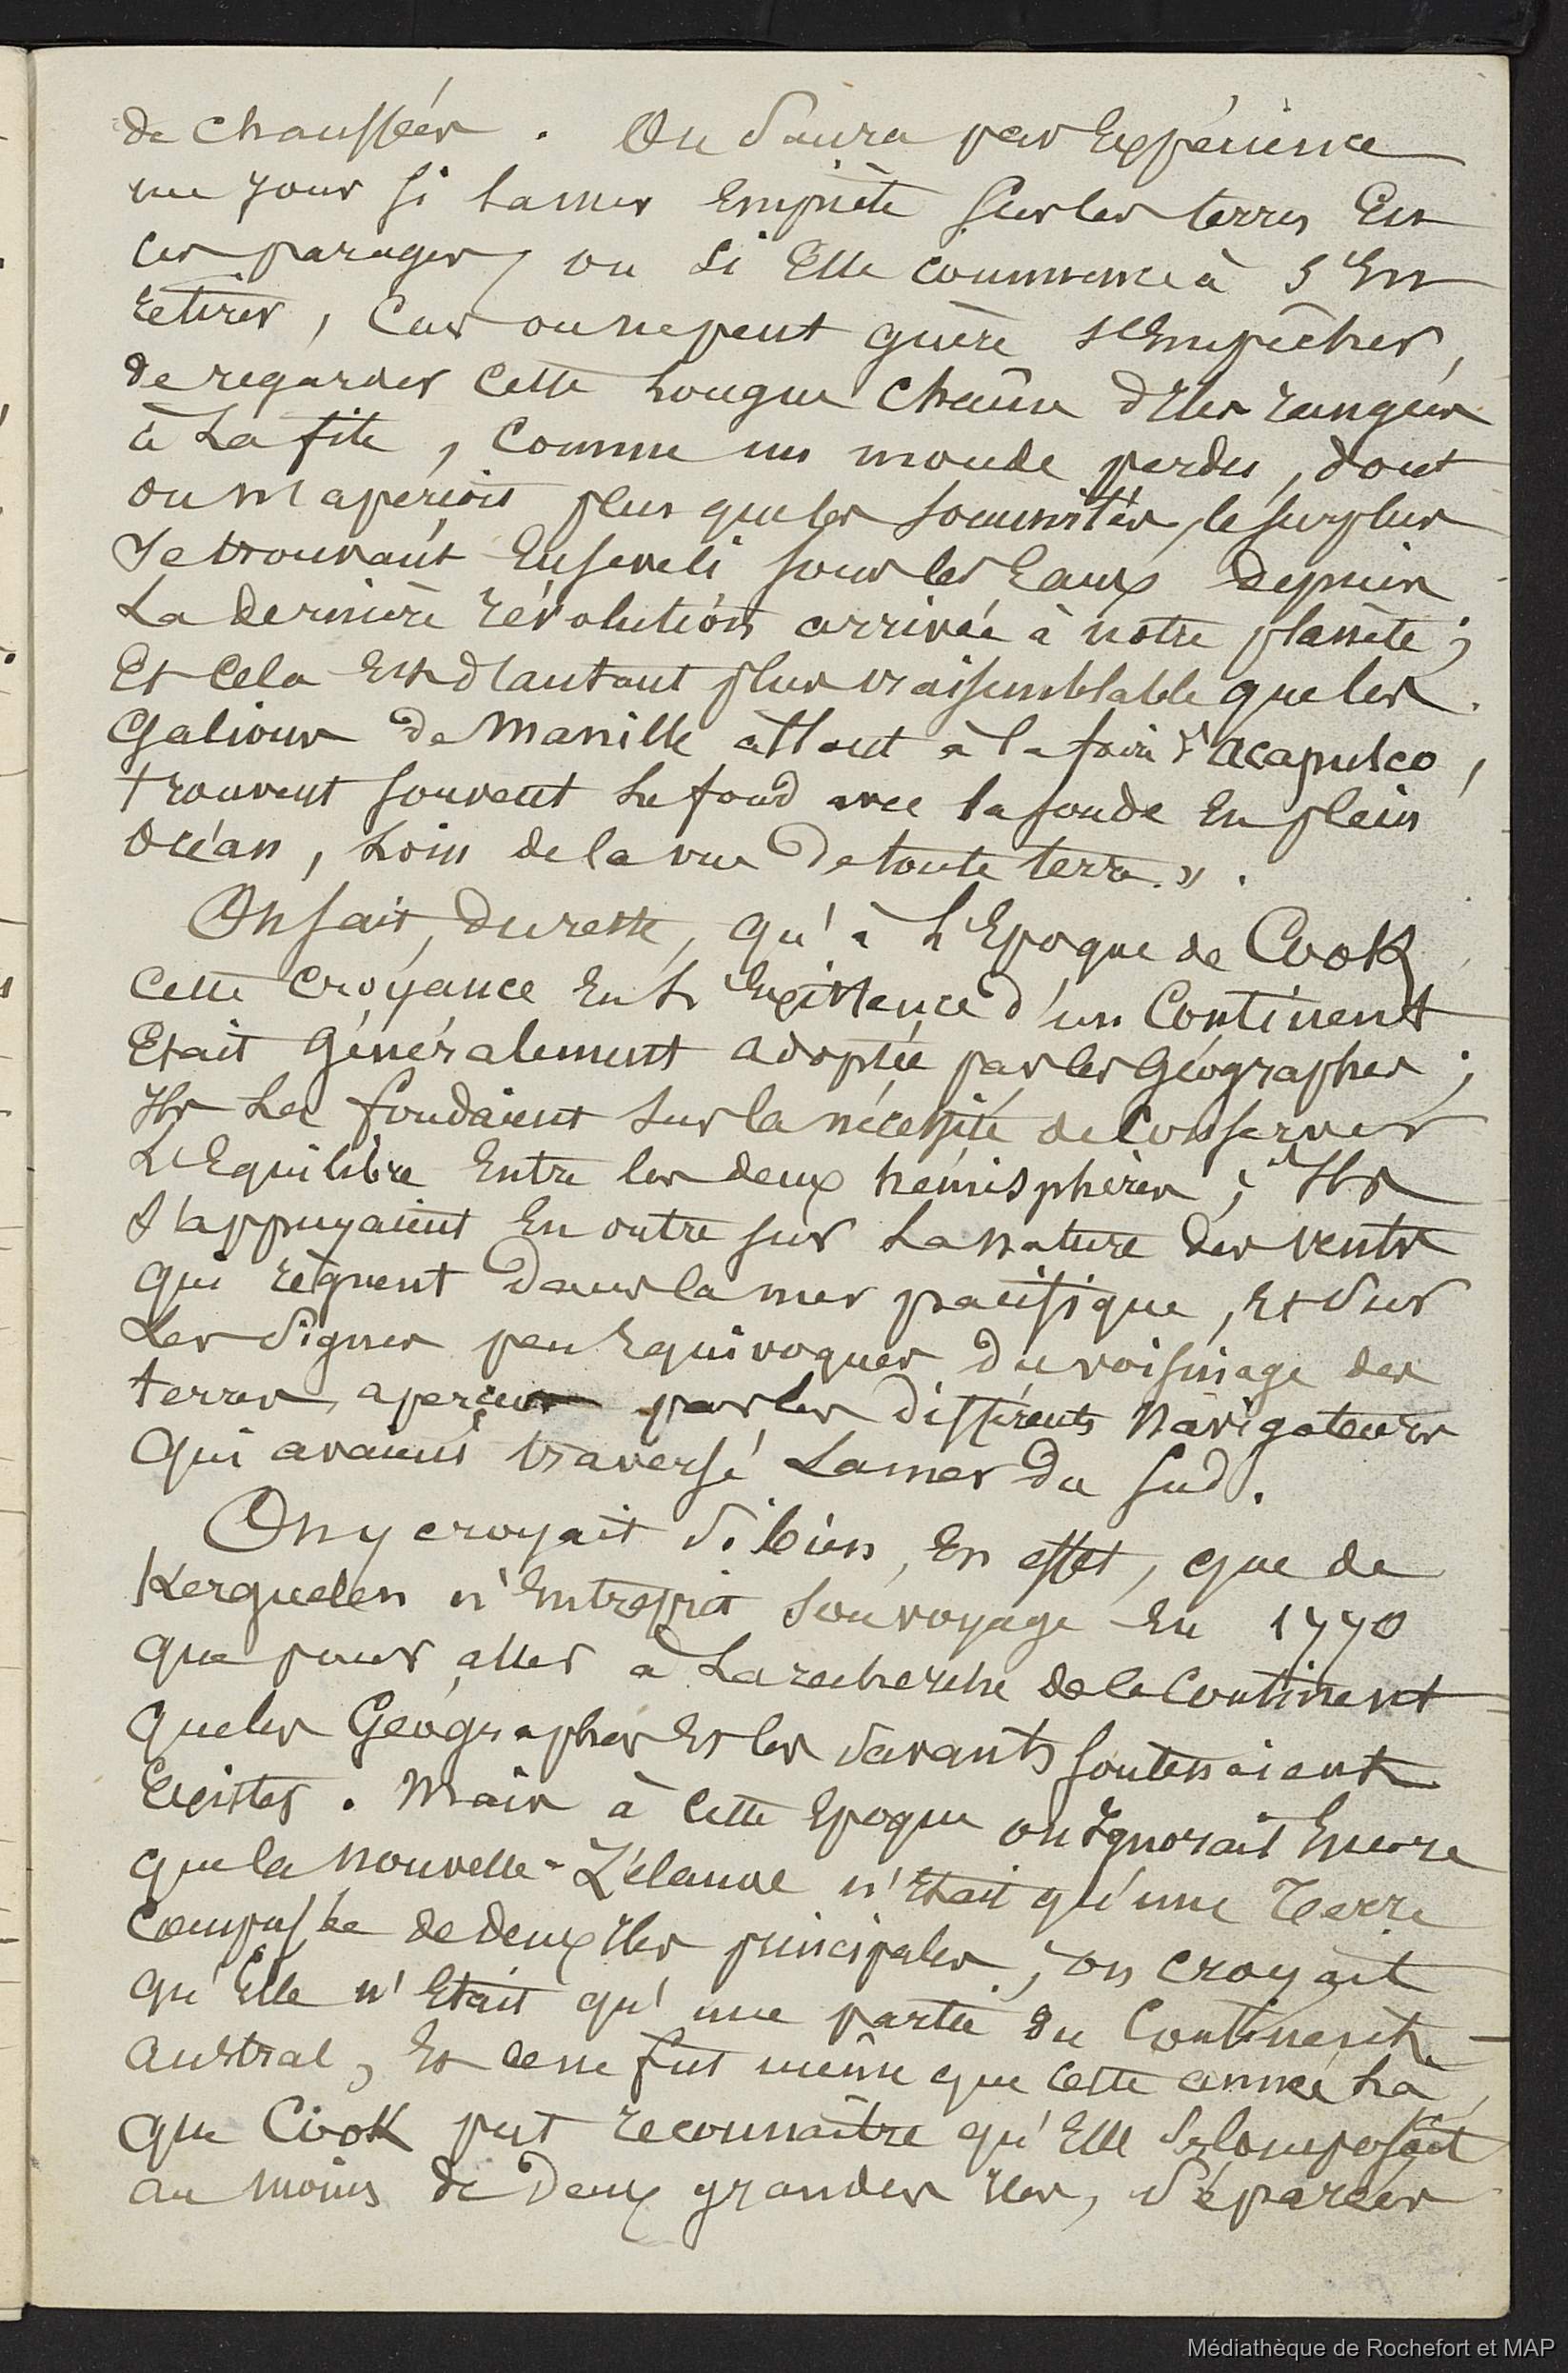 de chaussées. On Saura par Expérience
un jour si la mer Empiète sur les terres En
ces parages, ou si Elle commence à s'En
retirer, Car on ne peut guère s'Empêcher,
de regarder cette longue chaîne d'Iles rangées
à La file, comme un monde perdu, dont
on n'aperçoit plus que les sommités, le surplus
se trouvant Enseveli sous les Eaux depuis
La dernière révolution arrivée à notre planète;
Et Cela Est d'autant plus vraisemblable que les
Galions de Manille allant à la foire d'Acapulco,
trouvent souvent le fond avec la sonde En plein
Océan, Loin de la vue de toute terre. ».
On sait, du reste, qu'à L'Epoque de Cook
cette croyance En L'Existence d'un Continent
Etait Généralement adoptée par les Géographes;
Ils La fondaient sur la nécessité de Conserver
L'Equilibre Entre les deux hémisphères; Ils
s'appuyaient En outre sur La nature des vents
qui règnent Dans la mer pacifique, Et Sur
Les Signes peu Equivoques du voisinage des
terres, aperçus par les différents Navigateurs
qui avaient traversé La mer du Sud.
On y croyait Si bien, En effet, que de
Kerguelen n'Entreprit son voyage En 1770
que pour aller à La recherche de ce Continent
que les Géographes Et les savants soutenaient
Exister. Mais à cette Epoque on Ignorait Encore
que la nouvelle-Zélande n'Etait qu'une Terre
composée de deux Iles principales; on croyait
qu'Elle n'Etait qu'une partie du Continent
austral, Et ce ne fut même que cette année Là,
que Cook put reconnaître qu'Elle Se Composait
au moins de Deux grandes Iles, Séparées
Médiathèque de Rochefort et MAP